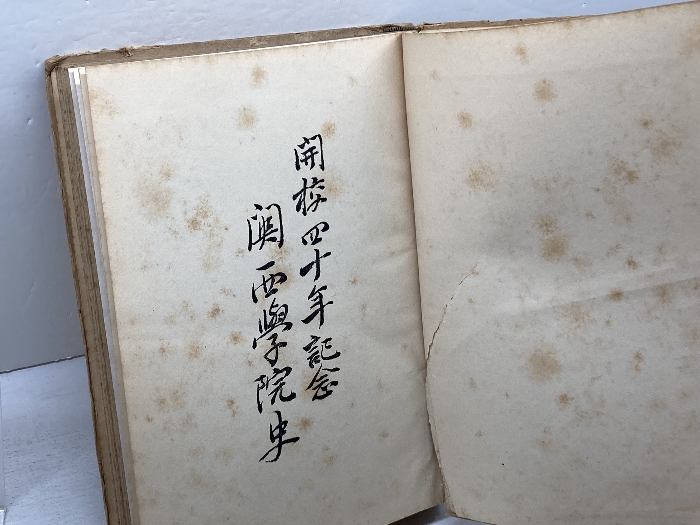 開校四十年記念
関西學院史